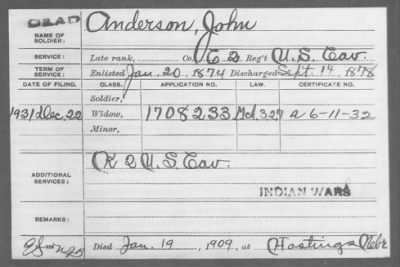 DEAD
Anderson, John
NAME OF SOLDIER:
SERVICE:
Late rank, Co. C. 2 Reg't U.S. Cav.
TERM OF SERVICE:
Enlisted Jan. 20, 1874 Discharged Sept. 14, 1878
DATE OF FILING. CLASS. APPLICATION NO. LAW. CERTIFICATE NO.
Soldier,
1931 Dec 22 Widow, 1708233 a 6-11-32
Minor,
ADDITIONAL SERVICES:
K 2 U.S. Cav.
INDIAN WARS
REMARKS:
Died Jan. 19, 1909, at Hastings Nebr